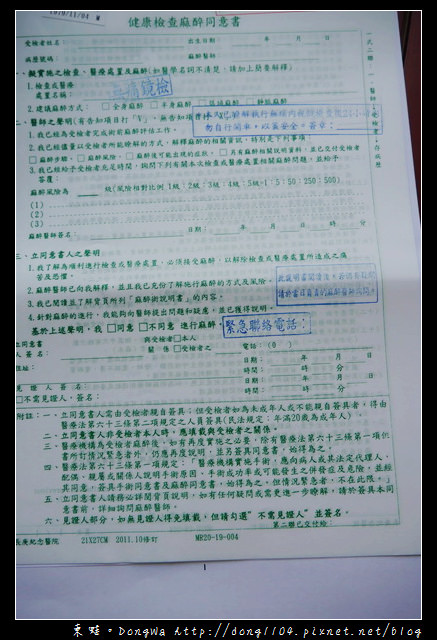 2010/11/04
健康檢查麻醉同意書
受檢者姓名:
出生日期: 年 月 日
病歷號碼:
麻醉醫師:
一、擬實施之檢查、醫療處置及麻醉(如醫學名詞不清楚,請加上簡要解釋)
1.檢查或醫療
處置名稱:
無痛鏡檢
2.建議麻醉方式:□全身麻醉 □半身麻醉
二、醫師之聲明
勿自行開車,以策安全。簽章:
1.我已經為受檢者完成術前麻醉評估工作。
2.我已經儘量以受檢者所能瞭解的方式,解釋麻醉的相關資訊,特別是下列事項:
□麻醉步驟。□麻醉風險。□麻醉後可能出現的症狀。□另有麻醉相關說明資料,並已交付受檢者
3.我已經給予受檢者充足時間,詢問下列有關本次檢查或醫療處置相關麻醉問題,並給予
答覆:
麻醉風險為 級(風險相對比例1級:2級:3級:4級:5級=1:5:50:250:500)
(1)
(2)
(3)
麻醉醫師簽名: 日期: 年 月 日 時 分
三、立同意書人之聲明
1.我了解為順利進行檢查或醫療處置,必須接受麻醉,以解除檢查或醫療處置所造成之痛
苦及恐懼。
2.麻醉醫師已向我解釋,並且我已充份了解施行麻醉的方式及風險。
3.我已閱讀並了解貴員所列「麻醉術說明書」的內容。
4.針對麻醉的進行,我能夠向醫師提出問題和疑慮,並已獲得說明。
基於上述聲明,我 □同意 □不同意 進行麻醉。
緊急聯絡電話:
立同意書 與受檢者□本人
人 簽 名: 關 係□受檢者之 電話:( 0 )
住址: 日期: 年 月 日
時間: 時 分
見 證 人 簽 名: 日期: 年 月 日
□不需見證人,簽名: 時間: 時 分
附註:一、立同意書人需由受檢者親自簽具;但受檢者如為未成年人或不能親自簽具者,得由
醫療法第六十三條第二項規定之人員簽具(民法規定:年滿20歲為成年人)。
二、立同意書人非受檢者本人時,應填載與受檢者之關係。
三、醫療機構為受檢者麻醉後,如有再度實施之必要,除有醫療法第六十三條第一項但
書所訂情況緊急者外,仍應再度說明,並另簽具同意書,始得為之。
四、醫療法第六十三條第一項規定:「醫療機構實施手術,應向病人或其法定代理人、
配偶、親屬或關係人說明手術原因、手術成功率或可能發生之併發症及危險,並經
其同意,簽具手術同意書及麻醉同意書,始得為之。但情況緊急者,不在此限。」
五、立同意書人請務必詳閱會員說明,如有任何疑問或需要進一步瞭解,請於簽具本同
意書前,詳細詢問麻醉醫師。
六、見證人部分,如無見證人得免填載,但請勾選"不需見證人"並簽名。
第二聯已交付檢:
長庚紀念醫院 21X27CM 2011.10修訂 MR20-19-004
東蛙。DongWa http://dong1104.pixnet.net/blog